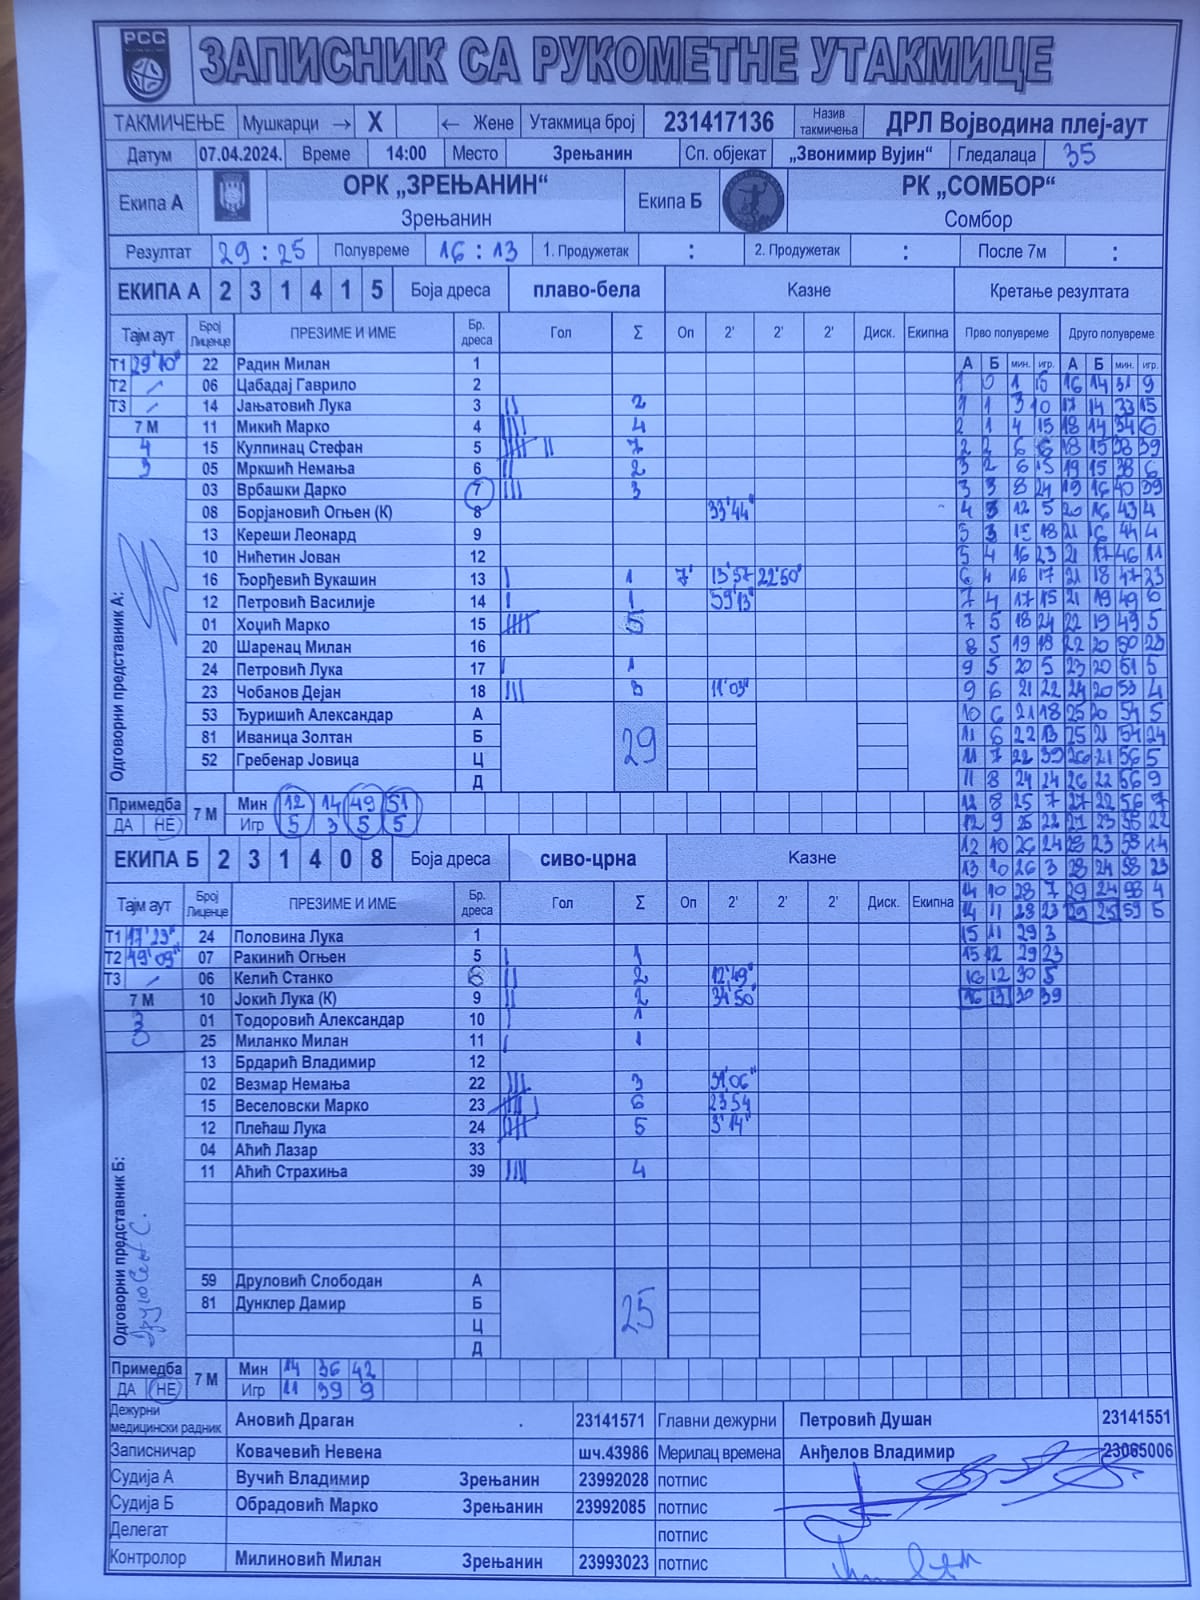 РСС
ЗАПИСНИК СА РУКОМЕТНЕ УТАКМИЦЕ
ТАКМИЧЕЊЕ Мушкарци → X ← Жене Утакмица број 231417136 Назив такмичења ДРЛ Војводина плеј-аут
Датум 07.04.2024. Време 14:00 Место Зрењанин Сп. објекат „Звонимир Вујин“ Гледалаца 35
Екипа А ОРК „ЗРЕЊАНИН“ Зрењанин Екипа Б РК „СОМБОР“ Сомбор
Резултат 29 : 25 Полувреме 16 : 13 1. Продужетак : 2. Продужетак : После 7м :
ЕКИПА А 2 3 1 4 1 5 Боја дреса плаво-бела Казне Кретање резултата
Тајм аут Број Лиценце ПРЕЗИМЕ И ИМЕ Бр. дреса Гол Σ Оп 2' 2' 2' Диск. Екипна Прво полувреме Друго полувреме
Т1 29'10" 22 Радин Милан 1 А Б мин. игр. А Б мин. игр.
Т2 06 Цабадај Гаврило 2 1 0 1 15 16 14 31 9
Т3 14 Јањатовић Лука 3 2 1 1 3 10 17 14 33 15
7 М 11 Микић Марко 4 4 2 1 4 15 18 14 34 6
4 15 Кулпинац Стефан 5 7 2 2 6 6 18 15 38 39
3 05 Мркшић Немања 6 2 3 2 6 15 19 15 38 6
03 Врбашки Дарко 7 3 3 3 8 24 19 16 40 39
08 Борјановић Огњен (К) 8 33'44" 4 3 12 5 20 16 43 4
13 Кереши Леонард 9 5 3 15 18 21 16 44 4
10 Нићетин Јован 12 5 4 16 23 21 17 46 11
16 Ђорђевић Вукашин 13 1 7' 13'57 22'50" 6 4 16 17 21 18 47 23
12 Петровић Василије 14 1 59'13" 7 4 17 15 21 19 49 6
01 Хоџић Марко 15 5 7 5 18 24 22 19 49 5
20 Шаренац Милан 16 8 5 19 18 22 20 50 23
24 Петровић Лука 17 1 9 5 20 5 23 20 51 5
23 Чобанов Дејан 18 3 11'03" 9 6 21 22 24 20 53 4
53 Ђуришић Александар А 10 6 21 18 25 20 54 5
81 Иваница Золтан Б 29 11 6 22 13 25 21 54 24
52 Гребенар Јовица Ц 11 7 22 39 26 21 56 5
Д 11 8 24 24 26 22 56 9
Одговорни представник А:
Примедба 7 М Мин 12 14 49 51 12 8 25 7 27 22 56 7
ДА НЕ Игр 5 3 5 5 12 9 25 22 27 23 58 22
ЕКИПА Б 2 3 1 4 0 8 Боја дреса сиво-црна Казне 12 10 26 24 28 23 58 14
13 10 26 3 28 24 58 23
Тајм аут Број Лиценце ПРЕЗИМЕ И ИМЕ Бр. дреса Гол Σ Оп 2' 2' 2' Диск. Екипна 14 10 28 7 29 24 58 4
14 11 28 23 29 25 59 6
Т1 17'23" 24 Половина Лука 1 15 11 29 3
Т2 49'09" 07 Ракинић Огњен 5 1 15 12 29 23
Т3 06 Келић Станко 6 2 12'49" 16 12 30 5
7 М 10 Јокић Лука (К) 9 2 34'50" 16 13 30 39
3 01 Тодоровић Александар 10 1
3 25 Миланко Милан 11 1
13 Брдарић Владимир 12
02 Везмар Немања 22 3 31'06"
15 Веселовски Марко 23 6 23'54
12 Плећаш Лука 24 5 3'14"
04 Аћић Лазар 33
11 Аћић Страхиња 39 4
Одговорни представник Б:
59 Друловић Слободан А
81 Дунклер Дамир Б 25
Ц
Д
Примедба 7 М Мин 14 36 42
ДА НЕ Игр 11 39 9
Дежурни медицински радник Ановић Драган . 23141571 Главни дежурни Петровић Душан 23141551
Записничар Ковачевић Невена шч.43986 Мерилац времена Анђелов Владимир 23065006
Судија А Вучић Владимир Зрењанин 23992028 потпис
Судија Б Обрадовић Марко Зрењанин 23992085 потпис
Делегат потпис
Контролор Милиновић Милан Зрењанин 23993023 потпис